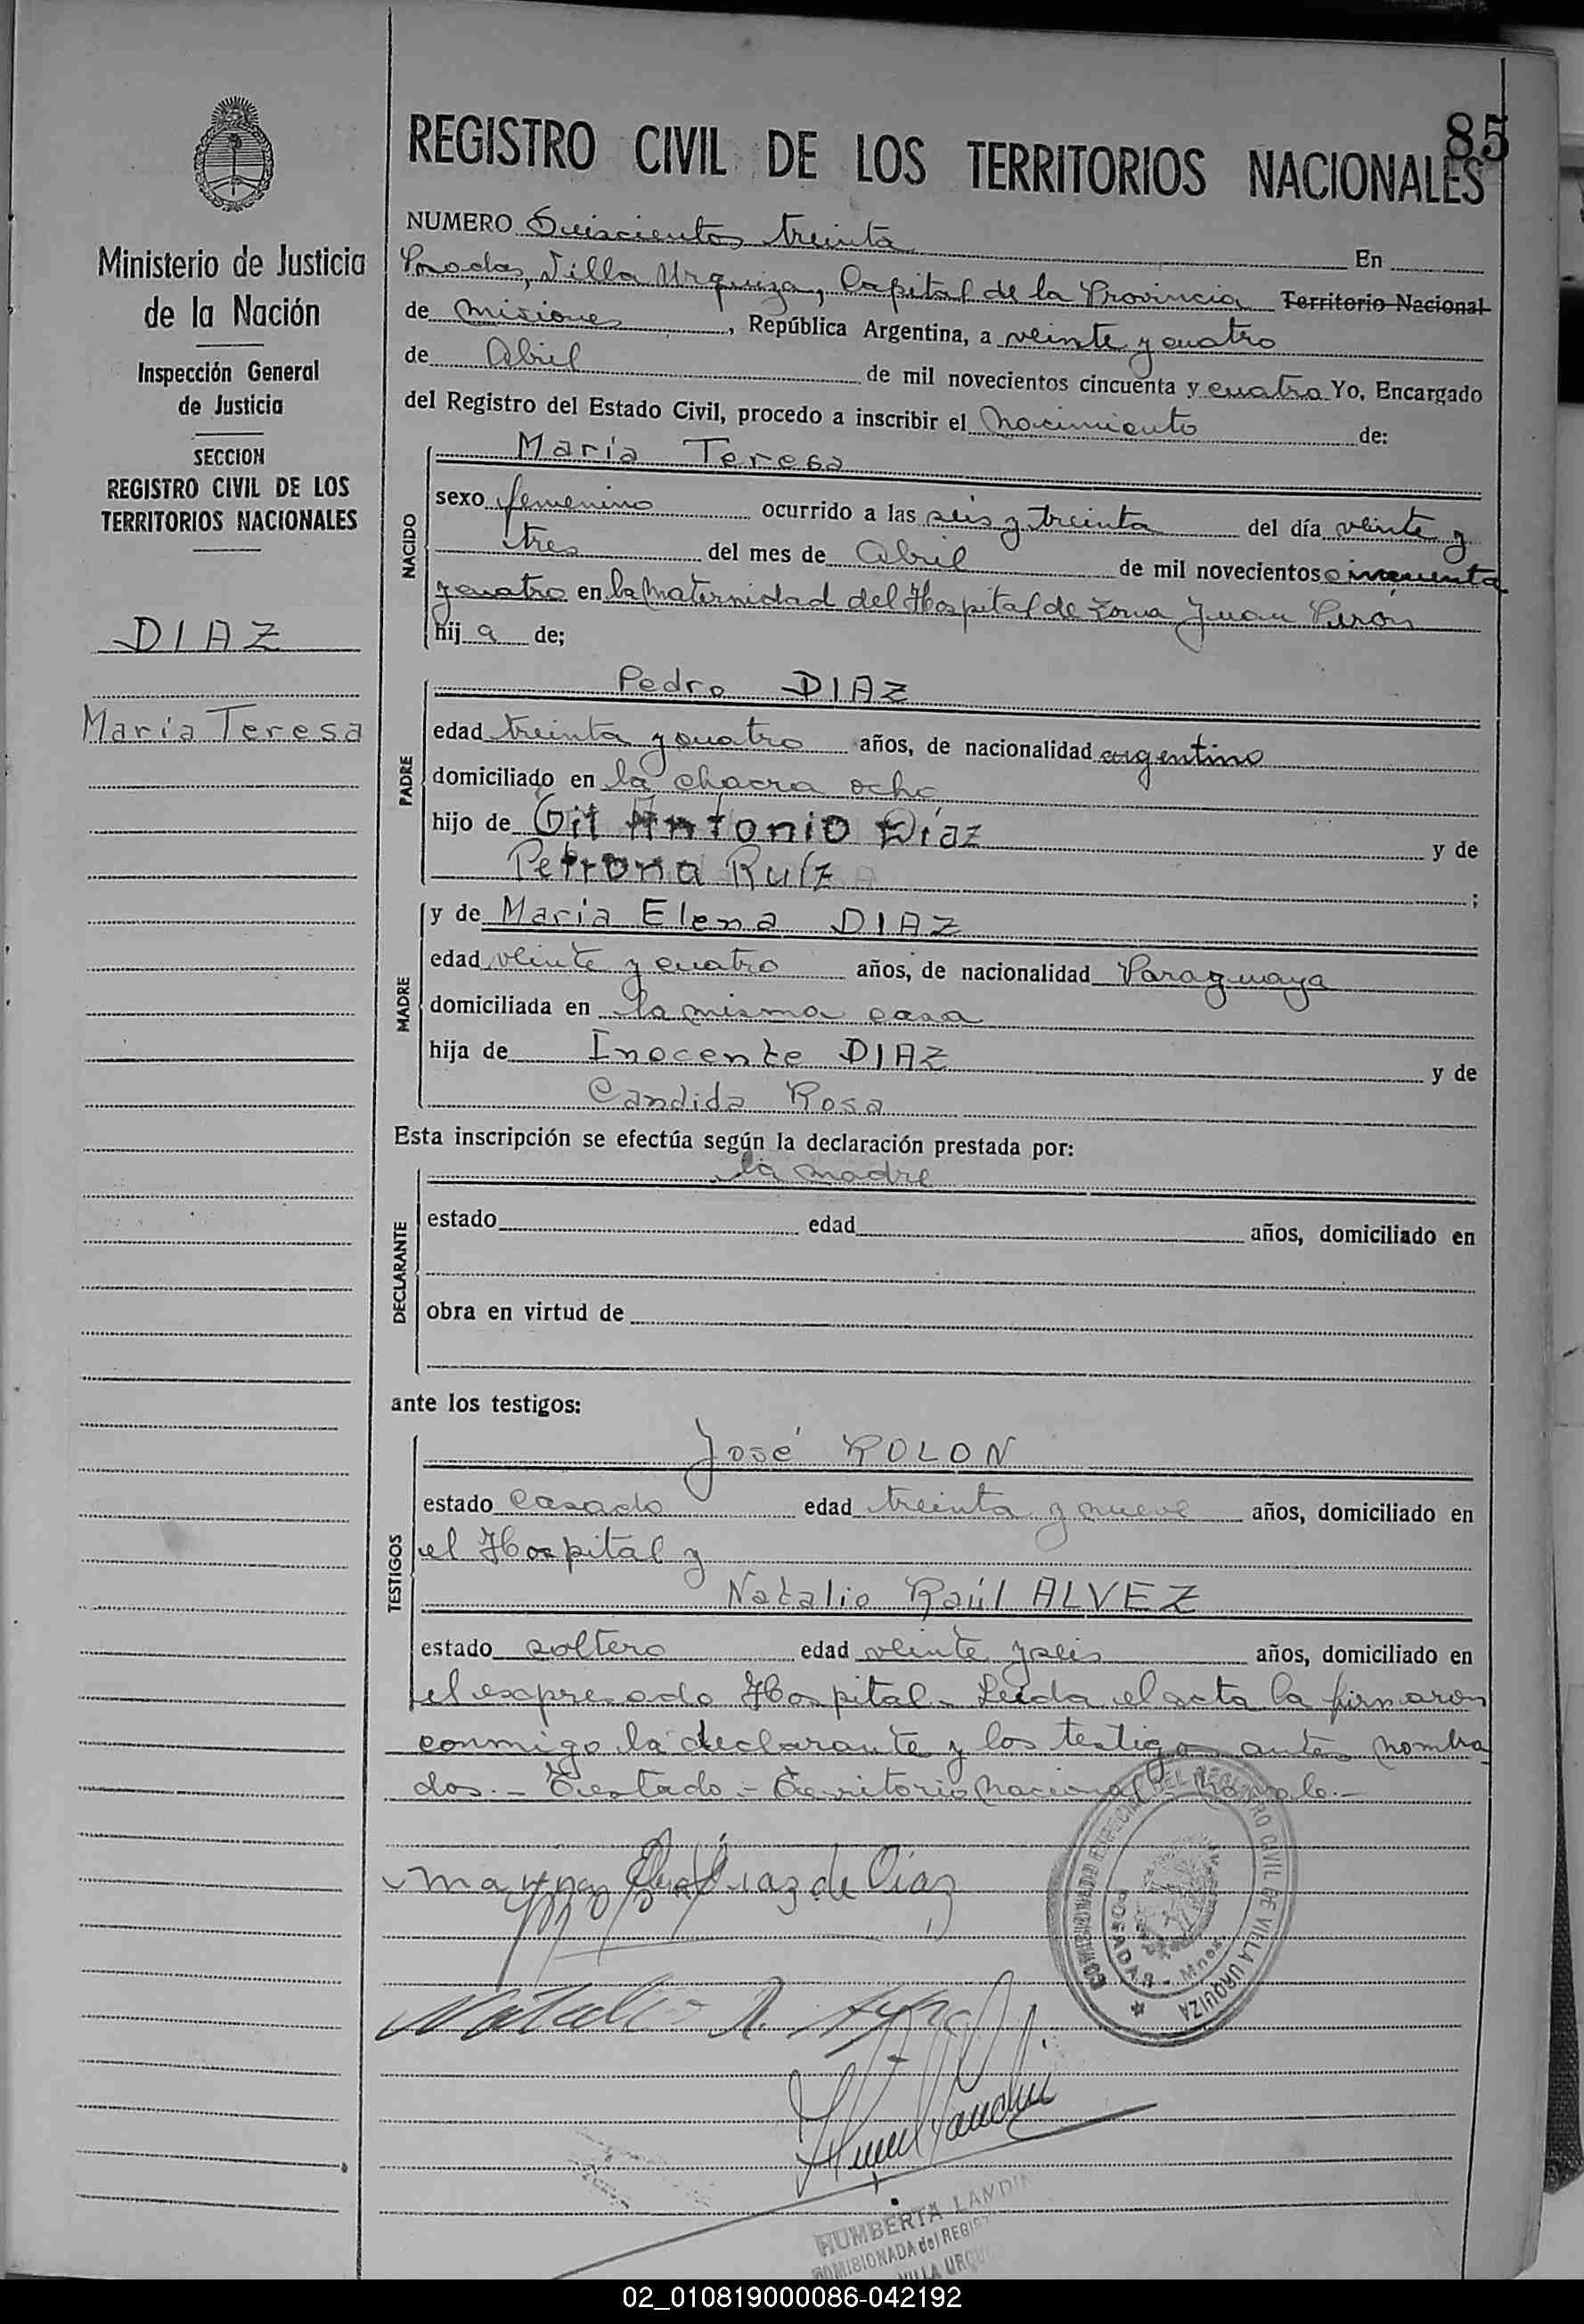 85
REGISTRO CIVIL DE LOS TERRITORIOS NACIONALES
Ministerio de Justicia
de la Nación
Inspección General
de Justicia
SECCION
REGISTRO CIVIL DE LOS
TERRITORIOS NACIONALES
DIAZ
María Teresa
NUMERO Duiscientos treinta En
Posadas, Villa Urquiza, Capital de la Provincia Territorio Nacional
de Misiones, República Argentina, a veinte y cuatro
de Abril de mil novecientos cincuenta y cuatro Yo, Encargado
del Registro del Estado Civil, procedo a inscribir el nacimiento de:
María Teresa
NACIDO
sexo femenino ocurrido a las seis y treinta del día veinte y
tres del mes de Abril de mil novecientos cincuenta
y cuatro en la Maternidad del Hospital de Zona Juan Perón
hij a de;
Pedro DIAZ
PADRE
edad treinta y cuatro años, de nacionalidad argentino
domiciliado en la chacra ocho
hijo de Gil Antonio Díaz y de
Petrona Ruíz ;
y de María Elena DIAZ
MADRE
edad veinte y cuatro años, de nacionalidad Paraguaya
domiciliada en la misma casa
hija de Inocente DIAZ y de
Candida Rosa
Esta inscripción se efectúa según la declaración prestada por:
la madre
DECLARANTE
estado edad años, domiciliado en
obra en virtud de
ante los testigos:
José ROLON
TESTIGOS
estado casado edad treinta y nueve años, domiciliado en
el Hospital y
Natalio Raúl ALVEZ
estado soltero edad veinte y seis años, domiciliado en
el expresado Hospital.- Leída el acta la firmaron
conmigo la declarante y los testigos antes nombra
dos.- Testado:- Territorio Nacional - No vale.-
Diaz de Diaz
COMISIONADO ESPECIAL DEL REGISTRO CIVIL DE VILLA URQUIZA
POSADAS - Mnes.
Natalio R.
HUMBERTA LANDIN
COMISIONADA del REGIST
VILLA URQUI
02_010819000086-042192